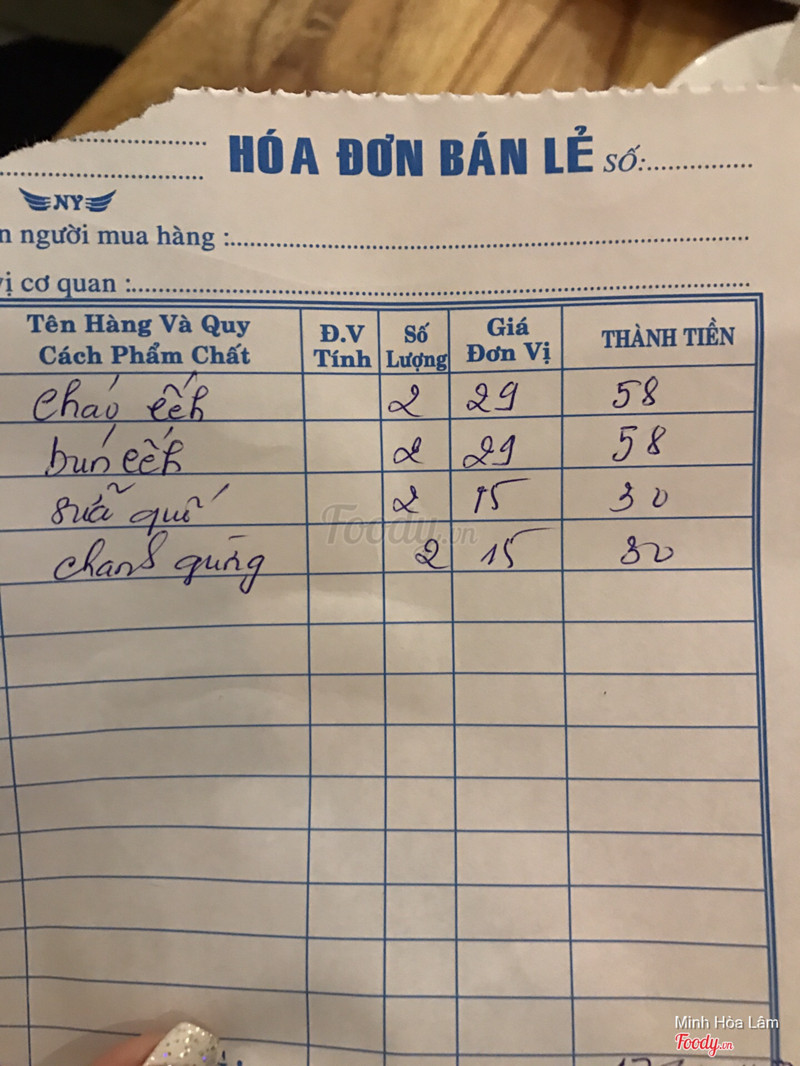 HÓA ĐƠN BÁN LẺ SỐ:
NY
n người mua hàng :
vị cơ quan :
Tên Hàng Và Quy Cách Phẩm Chất Đ.V Tính Số Lượng Giá Đơn Vị THÀNH TIỀN
Cháo ếch 2 29 58
bún ếch 2 29 58
2 15 30
2 15 30
Foody.vn
Minh Hòa Lâm
Foody.vn